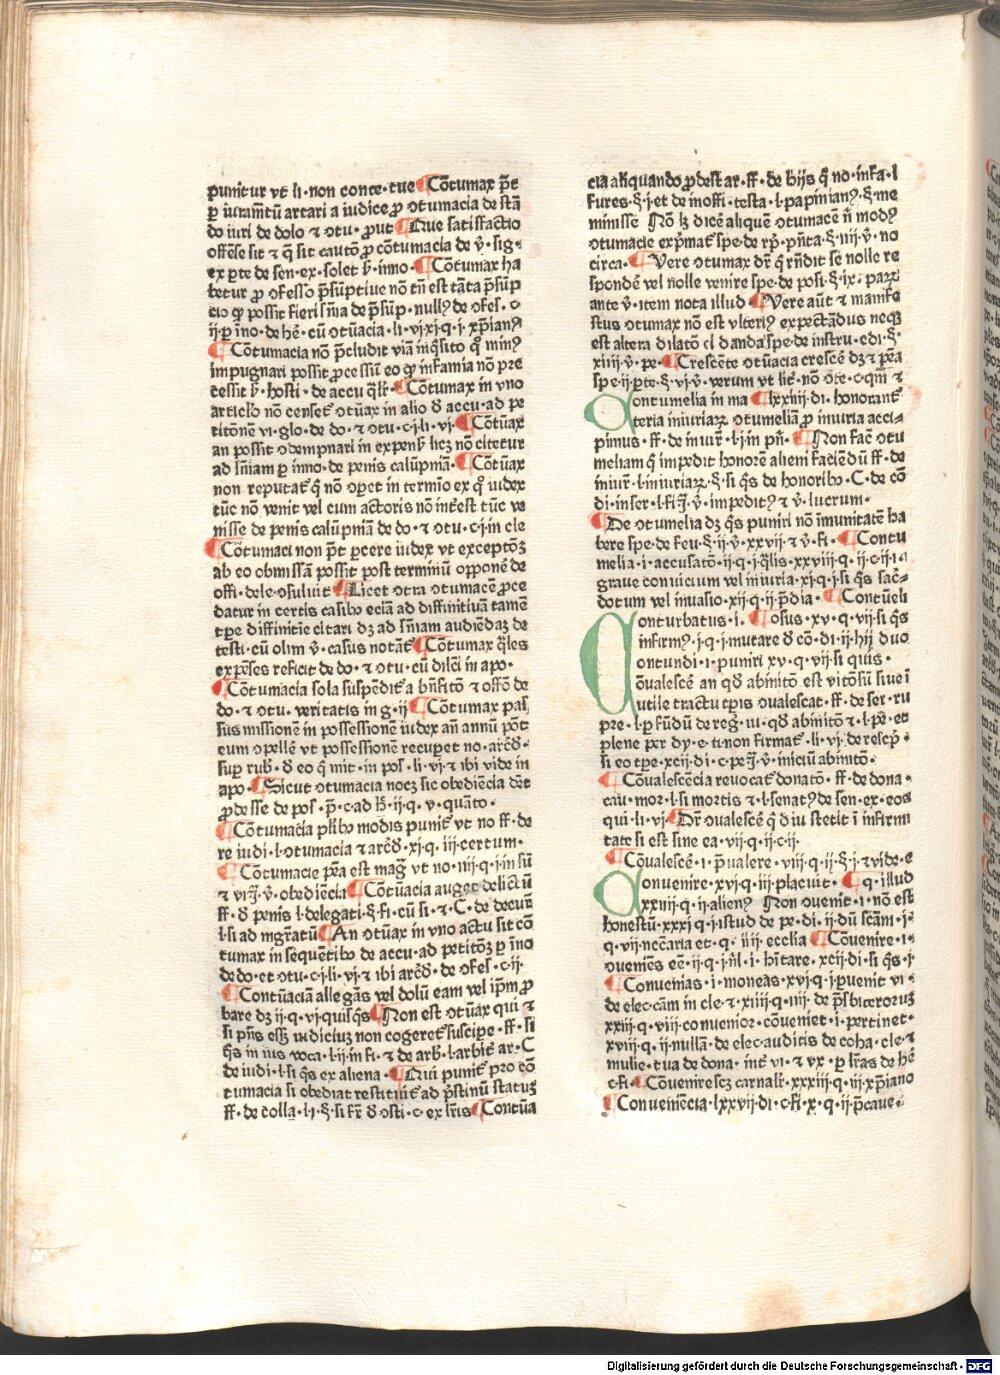 punitur vt li · non conte · tue ¶ Cōtumax p̄t
ꝑ iuramētū artari a iudice ꝓ ꝯtumacia de stā
do iuri de dolo ⁊ ꝯtu · ꝓut ¶ Que satisfactio
offēse sit ⁊ q̄ sit cautō ꝓ cōtumacia de v̄ · sig ·
ex ꝑte de sen · ex · solet v̄ · inno · ¶ Cōtumax ha
betur ꝓ ꝯfesso p̄suptiue nō tn̄ est tāta p̄sūp
cio ꝙ possit fieri sn̄ia de p̄sūp · nullꝰ de ꝯfes · c ·
ij · ꝑ īno · de hē · cū ꝯtūacia · li · vi · xj · q · j · xp̄ianꝰ
¶ Cōtumacia nō p̄cludit viā inq̄sito ꝙ minꝰ
impugnari possit ꝓcessiū eo ꝙ infamia nō pre
cessit v̄ · hosti · de accu q̄lr̄ · ¶ Cōtumax in vno
articlo nō censet̄ ꝯtūax in alio ꝺ accu · ad pe
titōnē vi · glo · de do · ⁊ ꝯtu · c · j · li · vi · ¶ Cōtūax
an possit ꝯdempnari in expens̄ licꝫ nō citetur
ad sn̄iam ꝑ inno · de penis calūpniā · ¶ Cōtūax
non reputat̄ q̄ nō ꝯꝑet in termīo ex ꝙ iudex
tūc nō venit vel cum actoris nō int̄est tūc ve
nisse de penis calūpniā de do · ⁊ ꝯtu · c · j · in cle
¶ Cōtumaci non p̄t ꝑcere iudex vt exceptōꝫ
ab eo obmissā possit post terminū opponē de
offi · dele · ꝯsuluit ¶ Licet ꝯtra ꝯtumacē ꝓce
datur in certis casibꝰ eciā ad diffinitiuā tamē
tꝑe diffinitīe citari dꝫ ad sn̄iam audiēdaꝫ de
testi · cū olim v̄ · casus notat̄ ¶ Cōtumax q̄les
expēses reficit de do · ⁊ ꝯtu · cū dilci in apo ·
¶ Cōtumacia sola suspēdit̄ a bn̄fitō ⁊ offō de
do · ⁊ ꝯtu · veritatis in g · ij ¶ Cōtumax pas
sus missionē in possessionē iudex an̄ annū pōt
eum ꝯpellē vt possessionē recuperet no · arc̄ꝺ ·
suꝑ rub̄ · ꝺ eo q̄ mit · in pos · li · vj · ⁊ ibi vide in
apo · ¶ Sicut ꝯtumacia nocꝫ sic obediēcia dēt
ꝓdesse de pos · p̄ · c · ad h̄ · ij · q · v · quāto ·
¶ Cōtumacia plibꝰ modis punit̄ vt no ff · de
re iudi · l · ꝯtumacia ⁊ arc̄ꝺ · xj · q · iij · certum ·
¶ Cōtumacie pēa est maḡ vt no · iiij · q · j · in sū
⁊ vrī · v̄ · obediēcia ¶ Cōtūacia auget delictū
ff · ꝺ penis l · delegati · § · fi · cū si · ⁊ · C · de decur̄
l · si ad mgr̄atū ¶ An ꝯtūax in vno actu sit cō
tumax in sequētibꝰ de accu · ad petitōꝫ ꝑ īno
de do · et ꝯtu · c · j · li · vj · ⁊ ibi arc̄ꝺ · de ꝯfes · c · ij ·
¶ Contūaciā allegās vel dolū eam vel ip̄m ꝓ
bare dꝫ ij · q · vi · quisq̄s ¶ Non est ꝯtūax qui ⁊
si pn̄s eēꝫ iudiciuꝫ non cogeret̄ suscipe · ff · si
q̄s in ius voca · l · ij · in fi · ⁊ de arb̄ · l · arbit̄ ar · C
de iudi · l · si q̄s ex aliena · ¶ Qui punit̄ pro cō
tumacia si obediat restituit̄ ad p̄stinū statuꝫ
ff · de colla · l · j · § · si fr̄ ꝺ osti · c · ex lr̄is ¶ Contūa
cia aliquando ꝓdest ar · ff · de hijs q̄ no · infa · l
fures · § · j · et de inoffi · testa · l · papinianꝰ · § · me
minisse Nō lꝫ dicēaliquē ꝯtumacē n̄ modꝰ
ꝯtumacie exp̄mat̄ spe · de rp̄ · pn̄ta · § · iiij · v̄ · no
circa · ¶ Vere ꝯtumax dr̄ q̄ rn̄dit se nolle re
spondē vel nolle venire spe · de posi · § · ix · parꝝ
ante v̄ · item nota illud · ¶ Vere aūt ⁊ manife
stus ꝯtumax nō est vlteriꝰ expectādus neqꝫ
est altera dilatō ei danda spe · de instru · edi · § ·
xiiij · v̄ · pe · ¶ Crescēte ꝯtūacia crescē dꝫ ⁊ pēa
spe · ij · ꝑte · § · vj · v̄ · verum vt lit̄ · nō ꝯte · c · qm̄ ⁊
Contumelia in ma ¶ lxxiiij · di · honorant̄
teria iniuriaꝝ ꝯtumeliā ꝓ iniuria acci ⸗
pimus · ff · de iniur̄ · l · j · in pn̄ · ¶ Non fac̄ ꝯtu
meliam q̄ impedit honorē alieni faciēdū ff · de
iniur̄ · l · iniuriaꝝ · § · si q̄s de honoribꝰ · C · de cō
di · inser · l · fi · j̄ · v̄ · impeditꝰ ⁊ v̄ · lucrum ·
¶ De ꝯtumelia dꝫ q̄s puniri nō īmunitatē ha
bere spe · de feu · § · ij · v̄ · xxvij · ⁊ v̄ · fi · ¶ Contu
melia · i · accusatō · ij · q · j · q̄lis · xxviij · q · ij · c · ij · i ·
graue conuicium vel iniuria · xj · q · j · si q̄s sac̄ ⸗
dotum vel inuasio · xij · q · ij · p̄dia · ¶ Contūeli
Conturbatus · i · ¶ ꝯsus · xv · q · vij · si q̄s
infirmꝰ · j · q · j · mutare ꝺ cō · di · ij · hij duo
Contundi · i · puniri xv · q · vij · si quis ·
Cōualescē an qꝺ abinitō est vitōsū siue ī
utile tractu tꝑis ꝯualescat · ff · de ser · ru
pre · l · ꝑ fūdū de reḡ · iu · qꝺ abinitō ⁊ · l · pē · et
plene per dy · e · ti · non firmat̄ · li · vj · de rescp̄ ·
si eo tꝑe · xcij · di · c · pe · j̄ · v̄ · iniciū abinitō ·
¶ Cōualescēcia reuocat̄ donatō · ff · de dona ·
cau · mor · l · si mortis ⁊ · l · senatꝰ de sen · ex · eos
qui · li · vj · ¶ Dr̄ ꝯualescē q̄ ꝺiu stetit ī infirmi
tate si est sine ea · vij · q · ij · c · ij ·
¶ Cōualescē · i · p̄ualere · viij · q · ij · § · j · ⁊ vide · e
Conuenire · xvj · q · iij · placuit · ¶ q · illud
xxiij · q · ij · alienꝰ Non ꝯuenit · i · nō est
honestū · xxxj · q · j · istud de pe · di · ij · dū scām · j ·
q · vij · nccāria et · q · iiij · eccl̄ia ¶ Cōuenire · i ·
ꝯueniēs eē · ij · q · j · nl̄ · i · hītare · xcij · di · si q̄s · i ·
¶ Conuenias · i · moneas · xvj · q · j · ꝑuenit vi ·
de elec · cām in cle · ⁊ · xiiij · q · iiij · de p̄sbiterorūꝫ
xxiij · q · viij · conuenior · cōueniet · i · pertinet ·
xviij · q · ij · nullā · de elec · auditis de coha · cle · ⁊
mulie · tua de dona · int̄ vi · ⁊ vx · ꝑ lr̄as de hē
c · fi · ¶ Cōuenire scꝫ carnalr̄ · xxxiij · q · iij · xp̄iano
¶ Conueniēcia · lxxvij · di · c · fi · x · q · ij · p̄caue ·
Digitalisierung gefördert durch die Deutsche Forschungsgemeinschaft - DFG